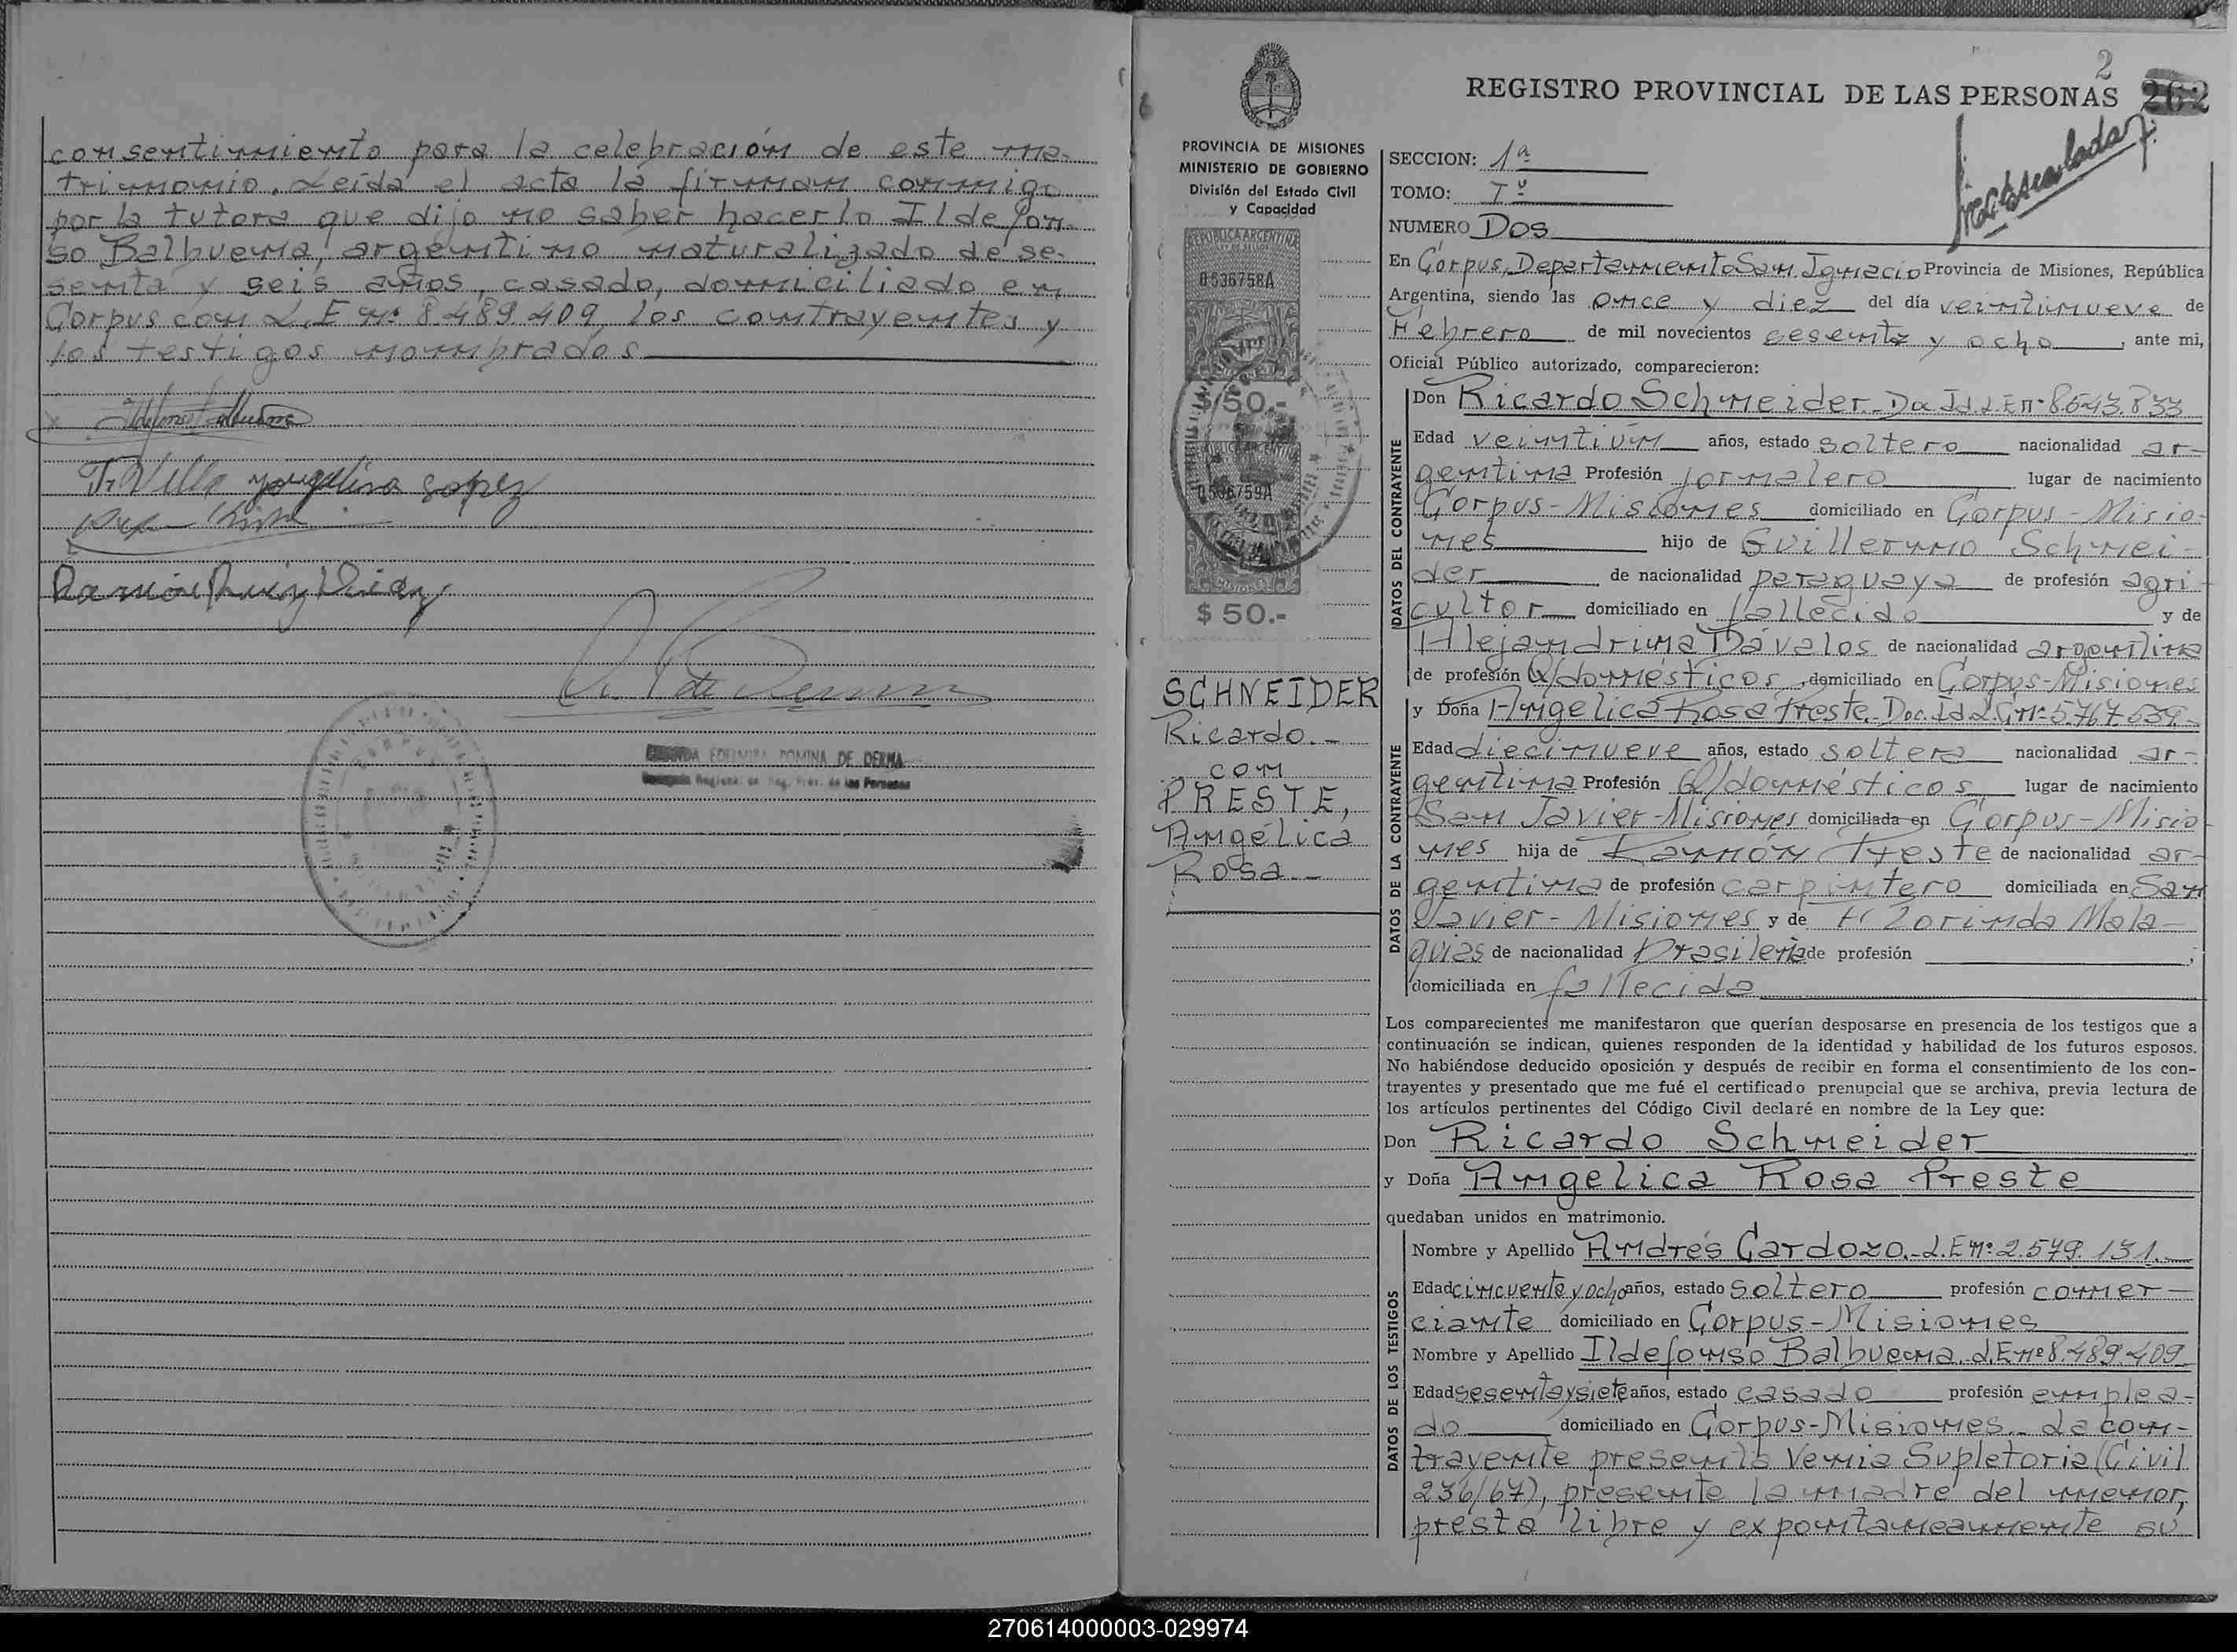 consentimiento para la celebración de este ma-
trimonio. Leída el acta la firman conmigo
por la tutora que dijo no saber hacerlo Ildefon-
so Balbuena, argentino naturalizado de se-
senta y seis años, casado, domiciliado en
Corpus con L.E nº 8.489.409, los contrayentes y
los testigos nombrados
Ildefonso Balbuena
T. Villa Jorgelina Lopez
Ramón Ruiz Diaz
EDELMIRA ROMINA DE DERNA
2
REGISTRO PROVINCIAL DE LAS PERSONAS 262
PROVINCIA DE MISIONES
MINISTERIO DE GOBIERNO
División del Estado Civil
y Capacidad
REPUBLICA ARGENTINA
0536758A
$ 50.-
REPUBLICA ARGENTINA
0536759A
$ 50.-
SCHNEIDER
Ricardo.-
con
PRESTE,
Angélica
Rosa.-
SECCION: 1ª
TOMO: Iº
NUMERO Dos
En Corpus, Departamento San Ignacio Provincia de Misiones, República
Argentina, siendo las once y diez del día veintinueve de
Febrero de mil novecientos sesenta y ocho, ante mi,
Oficial Público autorizado, comparecieron:
DATOS DEL CONTRAYENTE
Don Ricardo Schneider. Doc Id L.E nº 8.543.833
Edad veintiún años, estado soltero nacionalidad ar-
gentina Profesión jornalero lugar de nacimiento
Corpus-Misiones domiciliado en Corpus-Misio-
nes hijo de Guillermo Schnei-
der de nacionalidad paraguaya de profesión agri-
cultor domiciliado en fallecido y de
Alejandrina Dávalos de nacionalidad argentina
de profesión Q/domésticos, domiciliado en Corpus-Misiones
DATOS DE LA CONTRAYENTE
y Doña Angelica Rosa Preste. Doc. Id L.C nº 5.767.639
Edad diecinueve años, estado soltera nacionalidad ar-
gentina Profesión Q/domésticos lugar de nacimiento
San Javier-Misiones domiciliada en Corpus-Misio
nes hija de Ramón Preste de nacionalidad ar-
gentina de profesión carpintero domiciliada en San
Javier-Misiones y de Florinda Mala-
quias de nacionalidad brasileña de profesión
domiciliada en fallecida
Los comparecientes me manifestaron que querían desposarse en presencia de los testigos que a
continuación se indican, quienes responden de la identidad y habilidad de los futuros esposos.
No habiéndose deducido oposición y después de recibir en forma el consentimiento de los con-
trayentes y presentado que me fué el certificado prenupcial que se archiva, previa lectura de
los artículos pertinentes del Código Civil declaré en nombre de la Ley que:
Don Ricardo Schneider
y Doña Angelica Rosa Preste
quedaban unidos en matrimonio.
DATOS DE LOS TESTIGOS
Nombre y Apellido Andrés Cardozo.-L.E nº 2.579.131.
Edad cincuenta y ocho años, estado soltero profesión comer-
ciante domiciliado en Corpus-Misiones
Nombre y Apellido Ildefonso Balbuena. L.E nº 8.489.409
Edad sesenta y siete años, estado casado profesión emplea-
do domiciliado en Corpus-Misiones. La con-
trayente presenta Venia Supletoria (Civil
236/67), presente la madre del menor,
presta libre y expontaneamente su
270614000003-029974